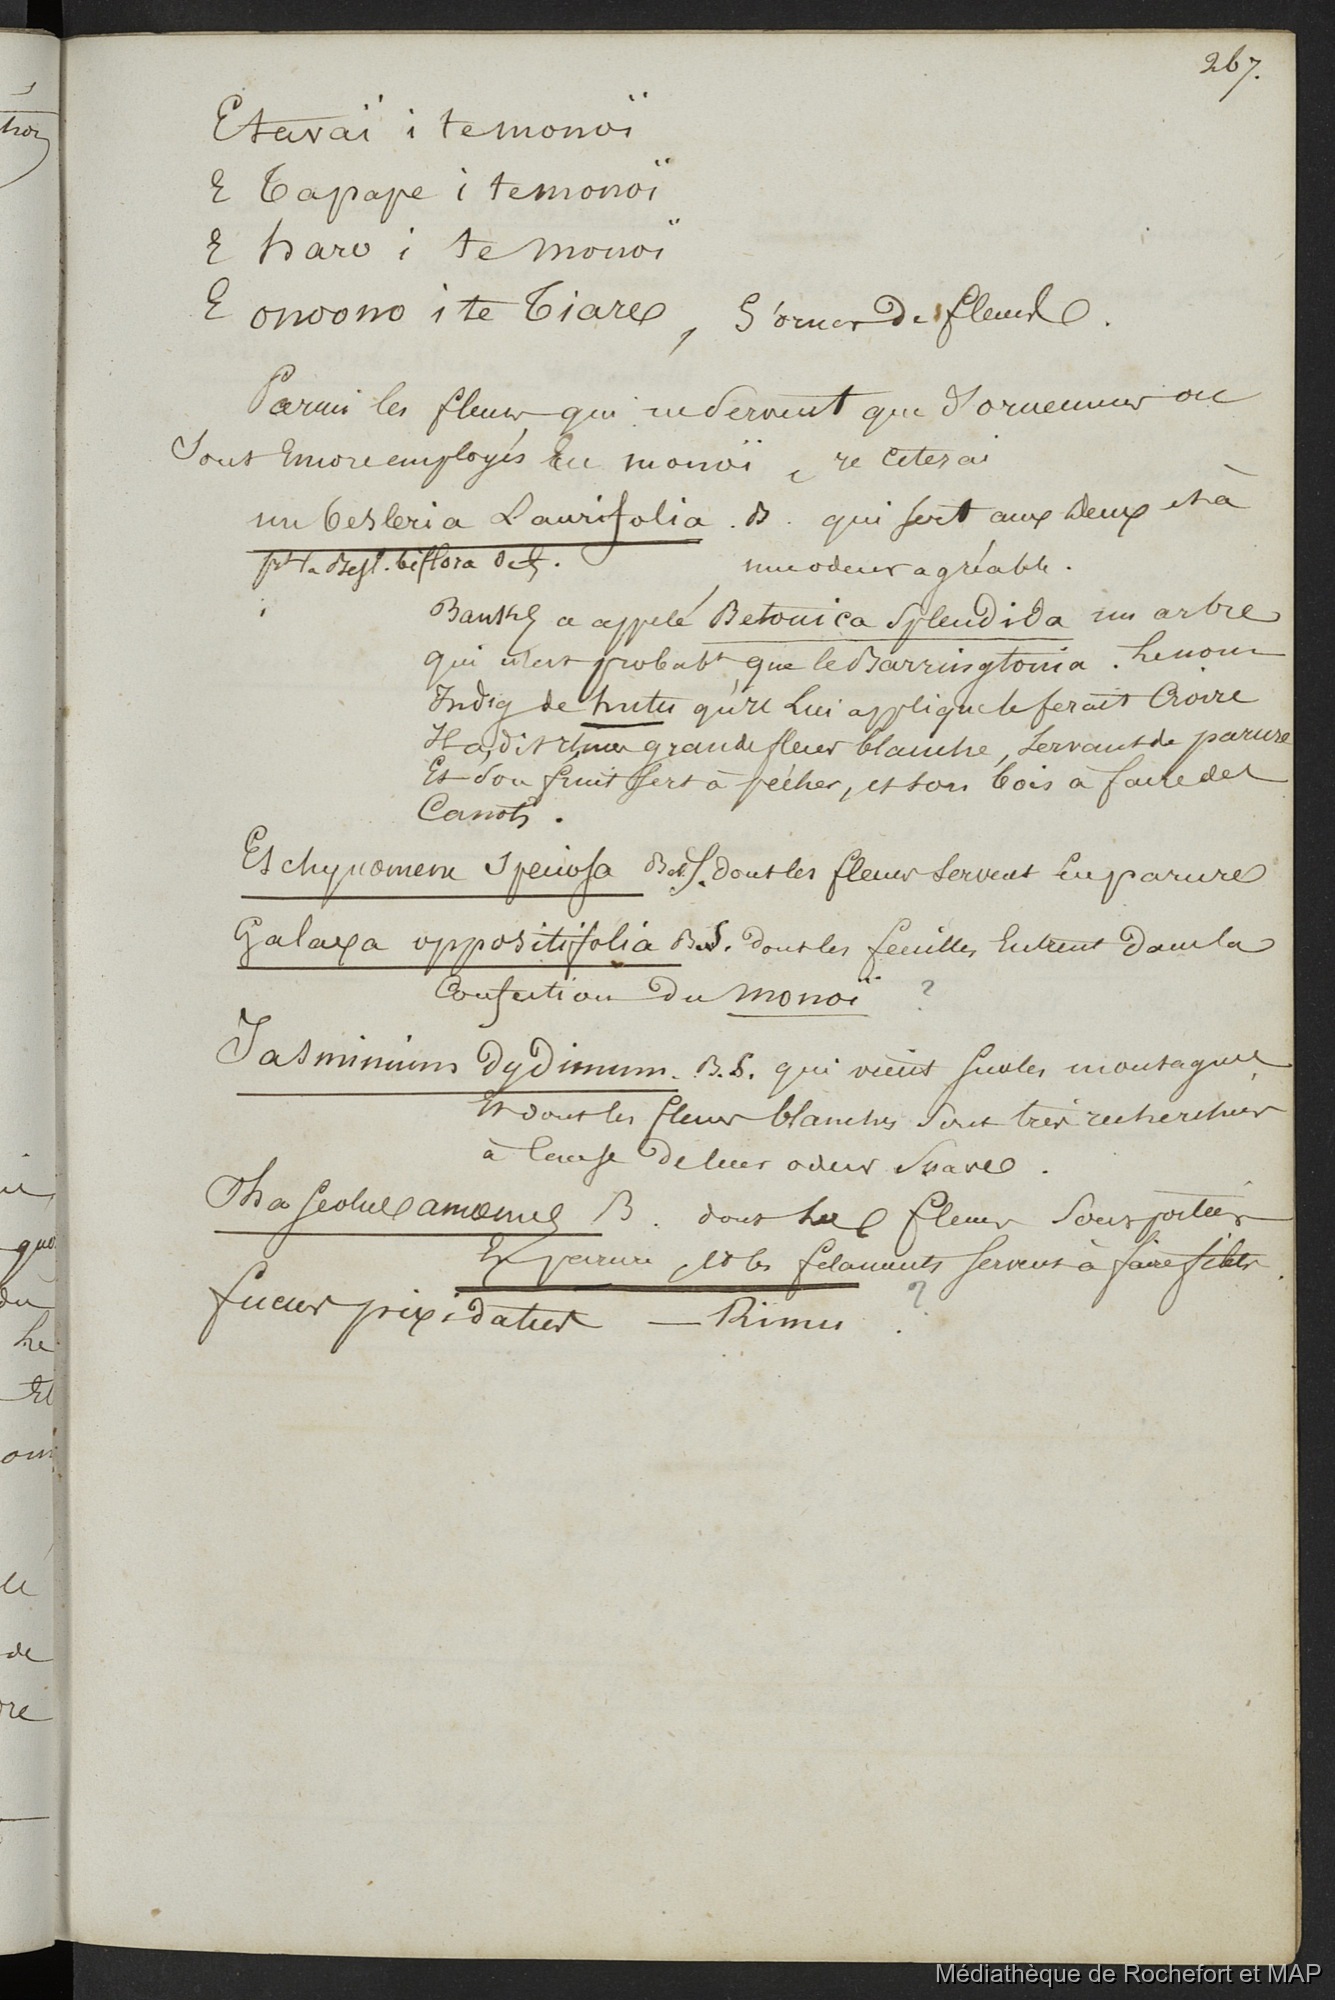 267.
E tavaï i te monoï
E Tapape i te monoï
E haro i te monoï
E onoono i te Tiare, S'orner De fleurs.
Parmi les fleurs qui ne servent que d'ornemens ou
Sont encore employés en monoï, je citerai
un besleria Laurifolia. B. qui sert aux deux et à
pt la Besl. biflora de f.
une odeur agréable.
Banks a appelé Betonica Splendida un arbre
qui n'est probabt que le Barringtonia. le nom
Indig de hutu qu'il Lui applique le ferait Croire
Il a, dit il, une grande fleur blanche, servant de parure
Et son fruit sert à pêcher, et son bois à faire des
Canots.
Eschynomene Speciosa B et S. dont les fleurs servent en parure
Galaxa oppositifolia B.S. dont les feuilles entrent dans la
Confection du monoï ?
Jasminium Dydimum. B.S. qui vient sur les montagnes
Et dont les fleurs blanches sont très recherchées
à cause de leur odeur Suave.
Phaseolus amoenus B. dont les fleurs sont portées
En parure, et les filaments servent à faire filets.
fucus pixidatus — Rimu. ?
Médiathèque de Rochefort et MAP